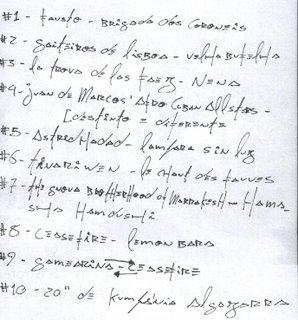 #1 - Fausto - Brigada dos Coroneis
#2 - Gaiteiros de Lisboa - Velha Butelha
#3 - La Trova de las Faez - Nena
#4 - Juan de Marcos' Afro Cuban All Stars -
[distinto = diferente
#5 - Astrid Hadad - Lampara sin luz
#6 - Tinariwen - le chant des fauves
#7 - The Gnoua Brotherhood of Marrakesh - Hama-
sha Hamdushi
#8 - Ceasefire - Lemon Bara
#9 - Gomearino - Ceasefire
#10 - 20" de Kumpania Algazarra